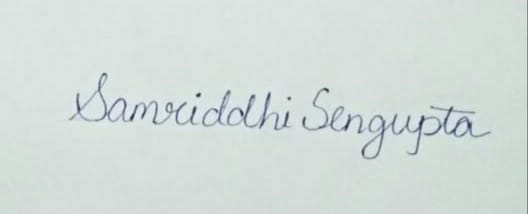 Samriddhi Sengupta